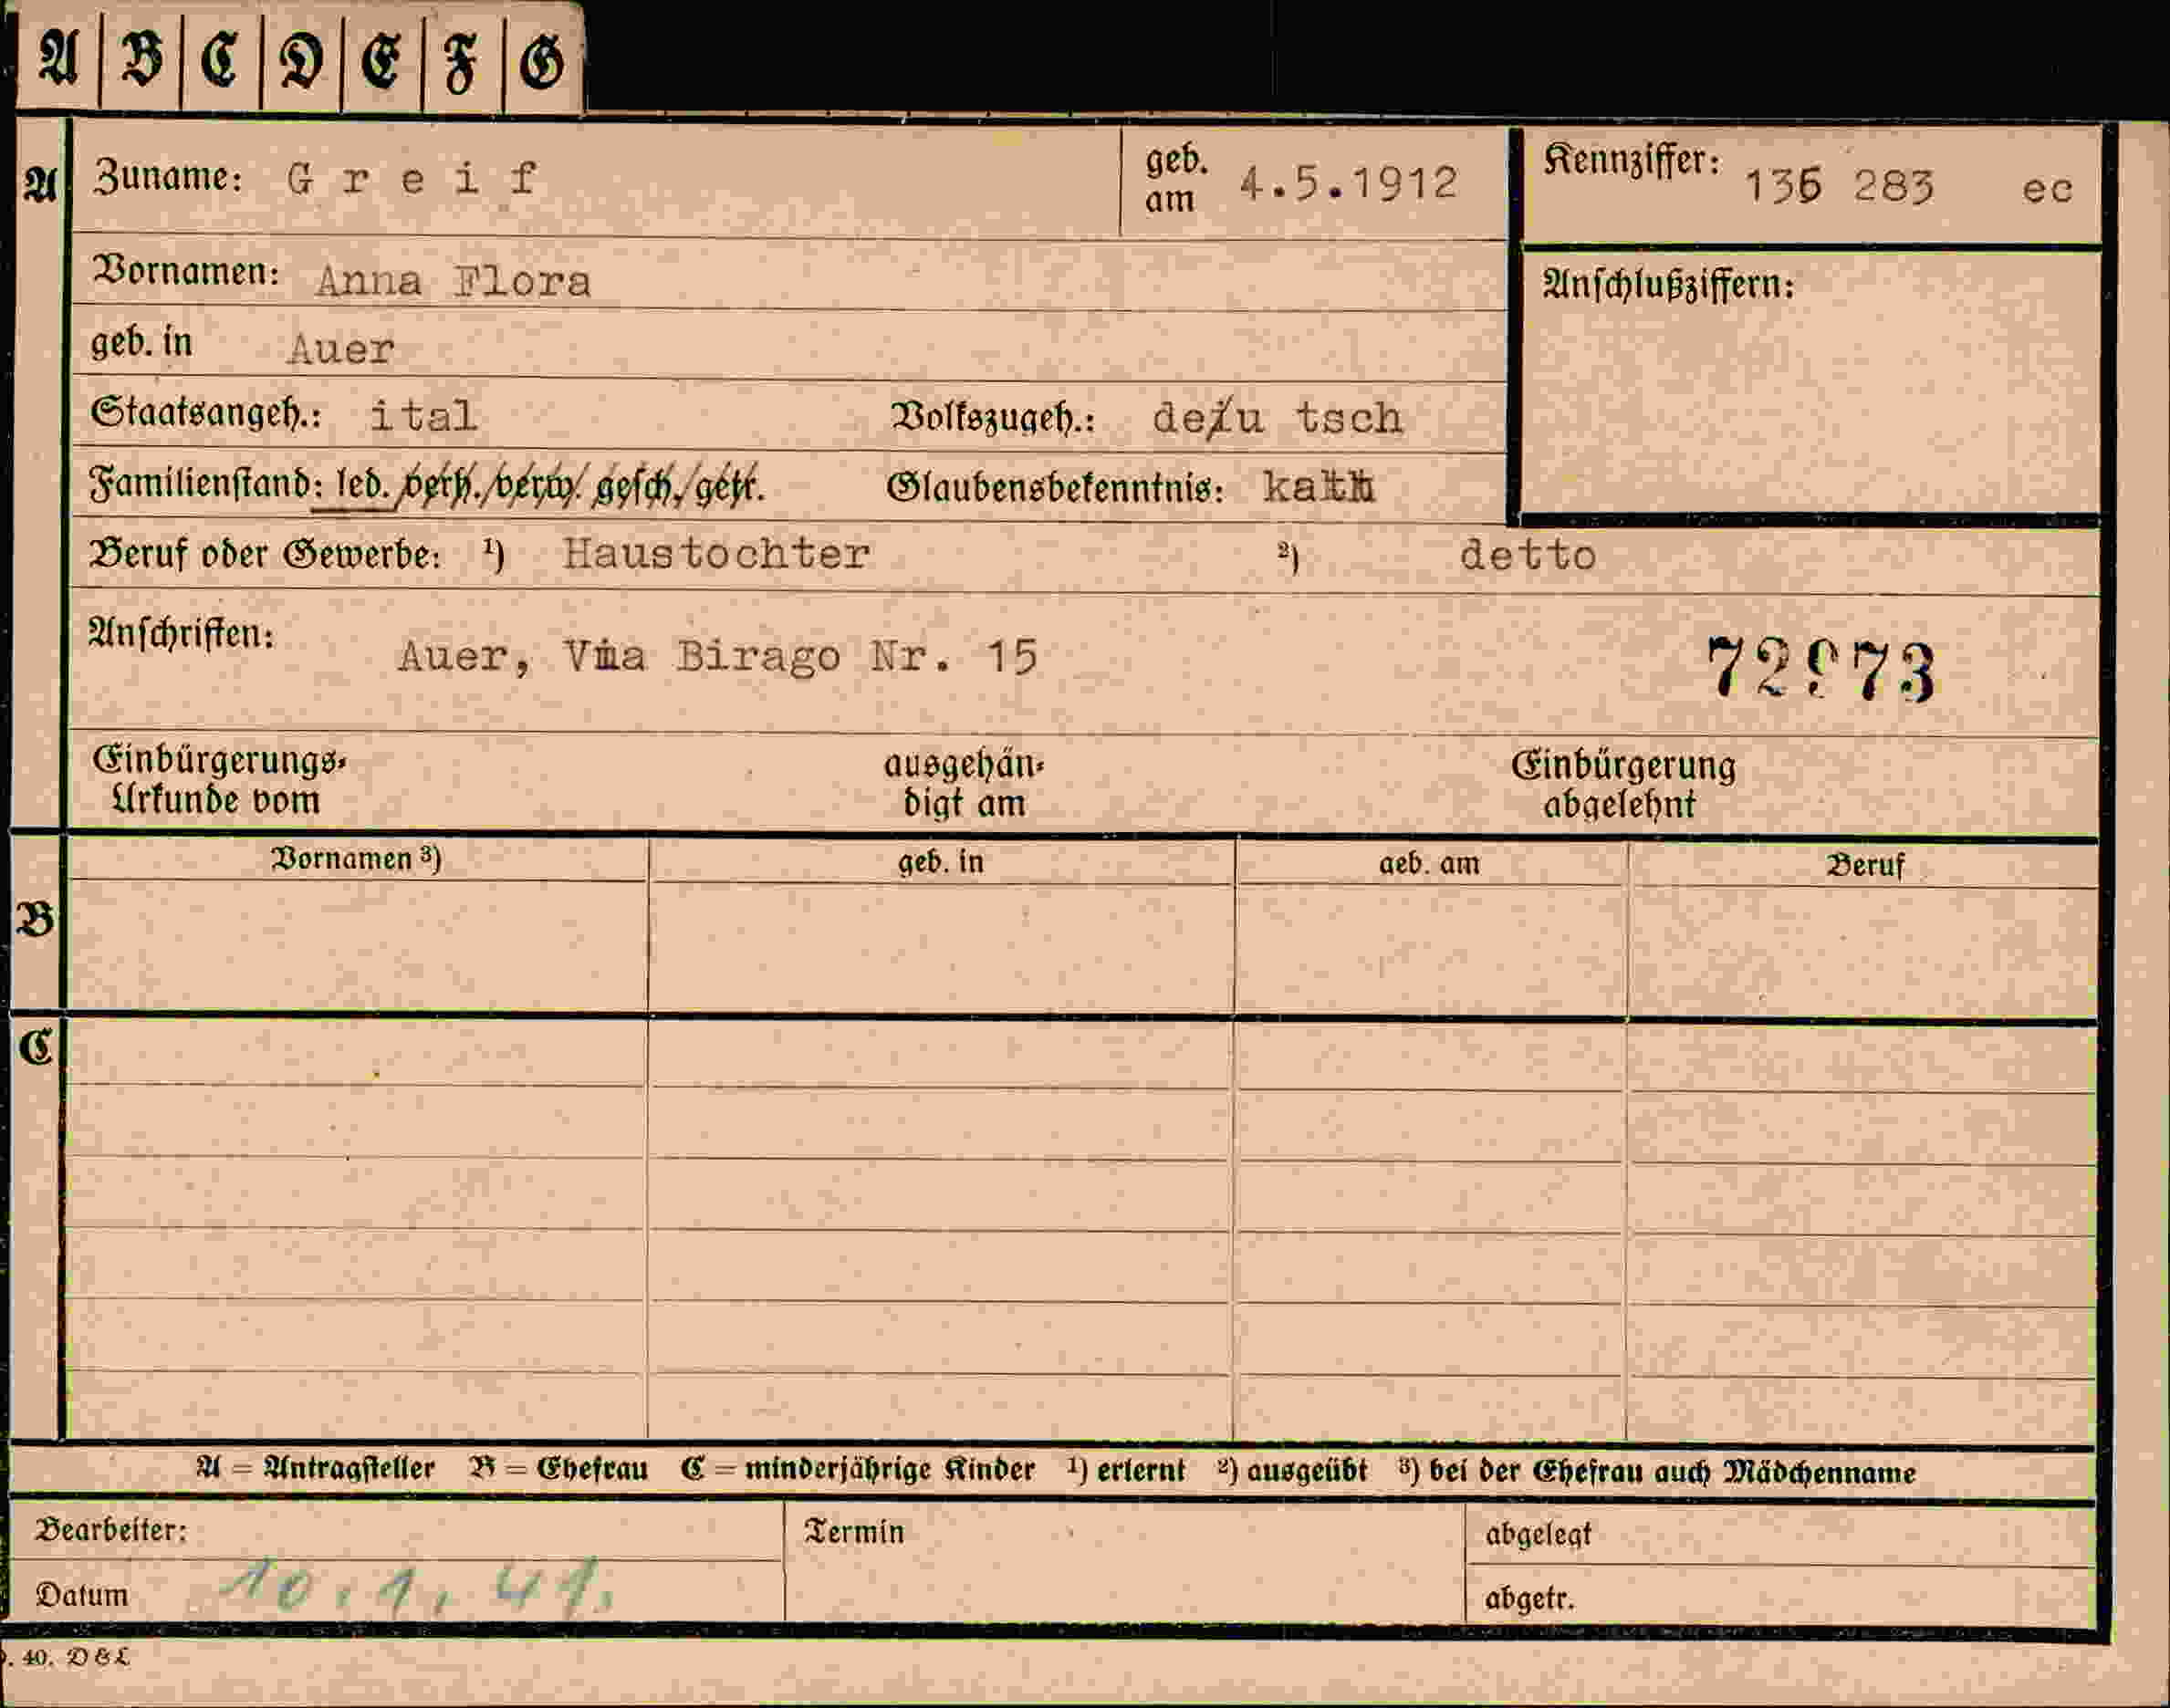 A B C D E F G
A Zuname: Greif geb. am 4.5.1912 Kennziffer: 136 283 ec
Vornamen: Anna Flora Anschlußziffern:
geb. in Auer
Staatsangeh.: ital Volkszugeh.: deutsch
Familienstand: led. verh. verw. gesch. getr. Glaubensbekenntnis: kath
Beruf oder Gewerbe: 1) Haustochter 2) detto
Anschriften: Auer, Via Birago Nr. 15
Einbürgerungs- ausgehän- Einbürgerung
Urkunde vom digt am abgelehnt
Vornamen 3) geb. in geb. am Beruf
B
C
A = Antragsteller B = Ehefrau C = minderjährige Kinder 1) erlernt 2) ausgeübt 3) bei der Ehefrau auch Mädchenname
Bearbeiter: Termin abgelegt
Datum 10.1.41. abgetr.
40. D&L